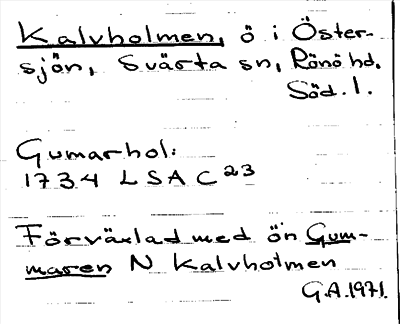 Kalvholmen, ö i Öster-
sjön, Svärta sn, Rönö hd.
Söd. l.
Gumarhol:
1734 LSA C 23
Förväxlad med ön Gum-
maren N Kalvholmen
G.A. 1971.